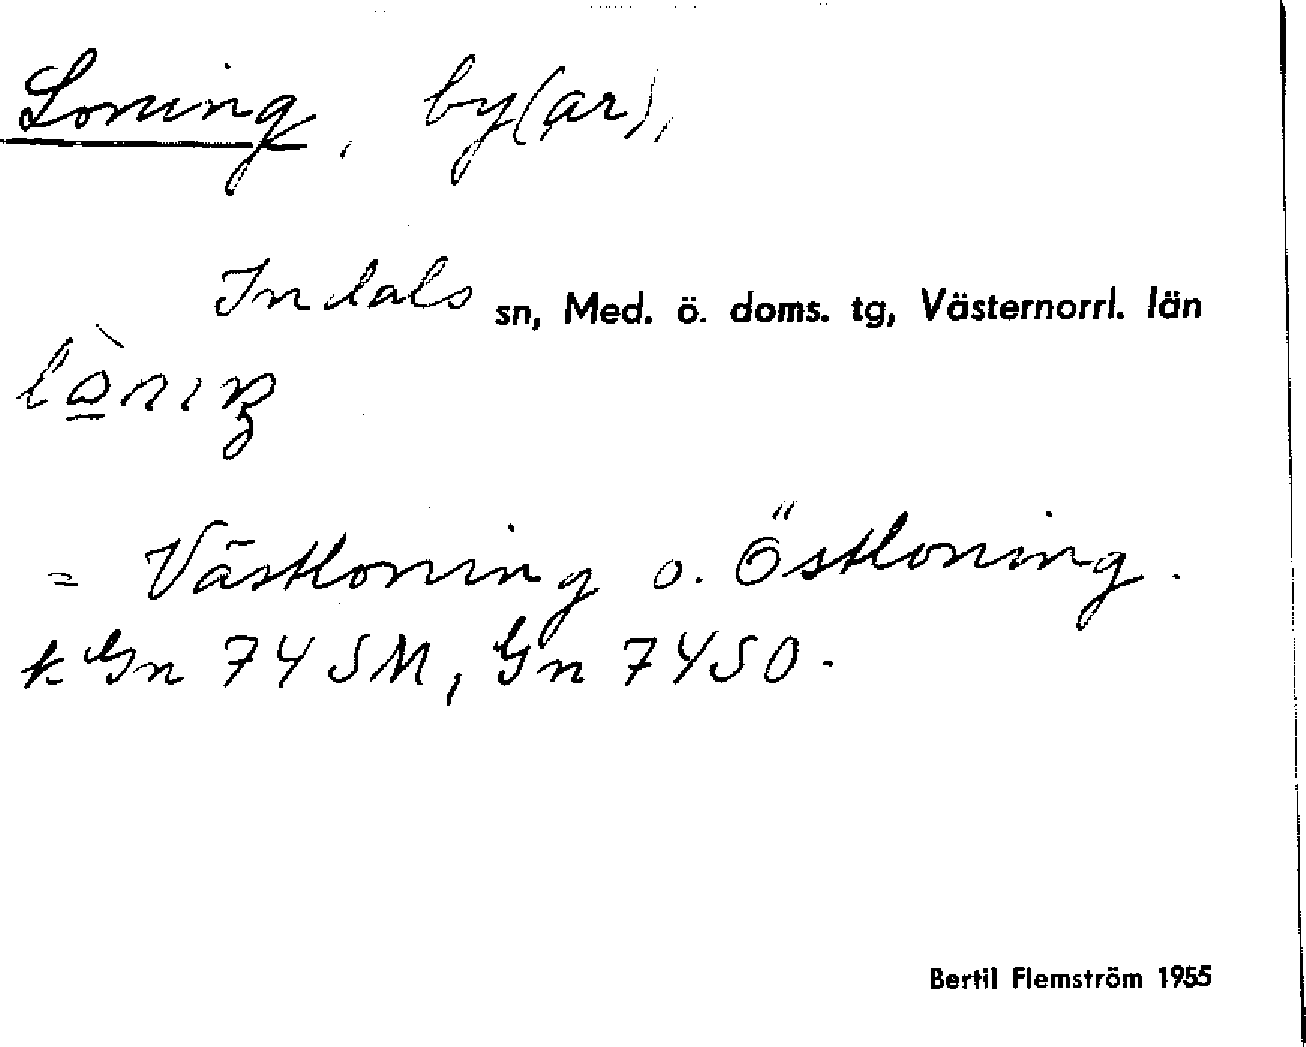 Loning, by(ar),
Indals sn, Med. ö. doms. tg, Västernorrl. län
= Västloning o. Östloning.
k Gn 74 SM, Gn 74 SO.
Bertil Flemström 1955